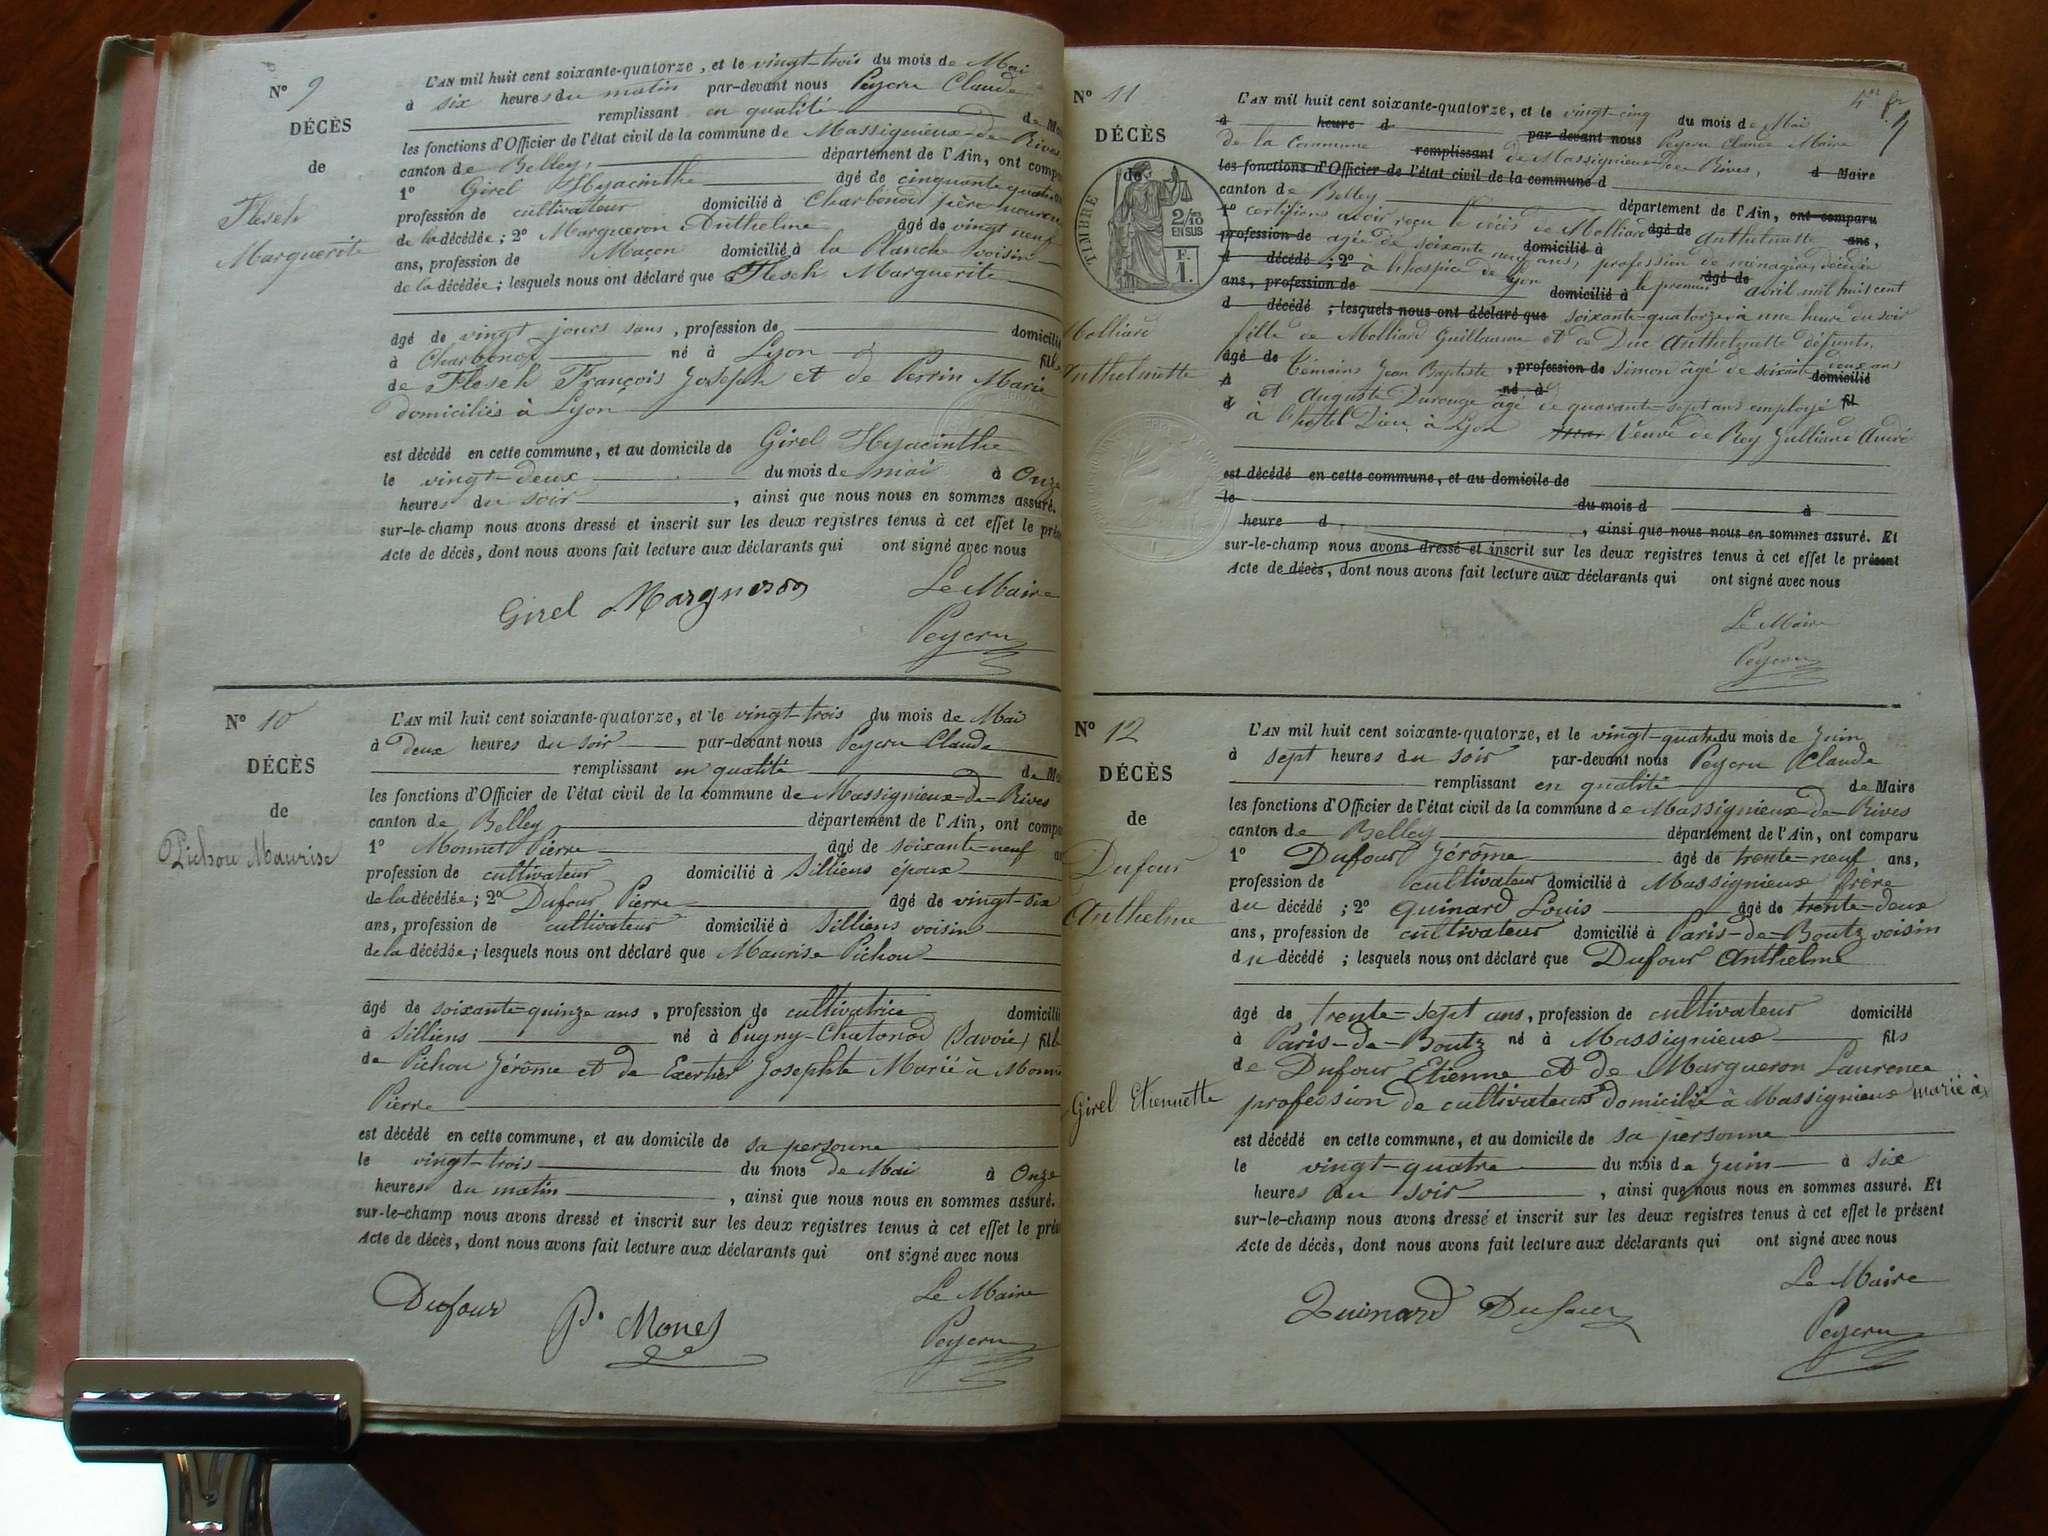 N° 9
DÉCÈS
de
Flesch
Marguerite
L'AN mil huit cent soixante-quatorze, et le vingt-trois du mois de Mai
à six heures du matin par-devant nous Peycru Claude
remplissant en qualité de Ma
les fonctions d'Officier de l'état civil de la commune de Massignieux-de-Rives
canton de Belley, département de l'Ain, ont compa
1° Girel Hyacinthe âgé de cinquante quatre
profession de cultivateur domicilié à Charbonod père nourri
de la décédée; 2° Margueron Anthelme âgé de vingt neuf
ans, profession de Maçon domicilié à la Planche voisin
de la décédée; lesquels nous ont déclaré que Flesch Marguerite
âgé de vingt jours sans, profession de domicilié
à Charbonod né à Lyon fil
de Flesch François Joseph et de Perrin Marie
domiciliés à Lyon
est décédé en cette commune, et au domicile de Girel Hyacinthe
le vingt-deux du mois de mai à Onze
heures du soir, ainsi que nous nous en sommes assuré.
sur-le-champ nous avons dressé et inscrit sur les deux registres tenus à cet effet le prés
Acte de décès, dont nous avons fait lecture aux déclarants qui ont signé avec nous
Girel Margueron Le Maire
Peycru
N° 10
DÉCÈS
de
Pichou Maurise
L'AN mil huit cent soixante-quatorze, et le vingt-trois du mois de Mai
à Deux heures du soir par-devant nous Peycru Claude
remplissant en qualité de Ma
les fonctions d'Officier de l'état civil de la commune de Massignieux-de-Rives
canton de Belley département de l'Ain, ont compa
1° Monnet Pierre âgé de soixante-neuf an
profession de cultivateur domicilié à Silliens époux
de la décédée; 2° Dufour Pierre âgé de vingt-six
ans, profession de cultivateur domicilié à Silliens voisin
de la décédée; lesquels nous ont déclaré que Maurise Pichou
âgé de soixante-quinze ans, profession de cultivatrice domicilié
à Silliens né à Pugny-Chatonod (Savoie) fill
de Pichou Jérôme et de Exertier Josephte Marié à Monne
Pierre
est décédé en cette commune, et au domicile de sa personne
le vingt-trois du mois de Mai à Onze
heures du matin, ainsi que nous nous en sommes assuré.
sur-le-champ nous avons dressé et inscrit sur les deux registres tenus à cet effet le prés
Acte de décès, dont nous avons fait lecture aux déclarants qui ont signé avec nous
Dufour P. Monet Le Maire
Peycru
N° 11
DÉCÈS
de
TIMBRE
2/10
EN SUS
F.
1.
Molliard
Anthelmette
L'AN mil huit cent soixante-quatorze, et le vingt-cinq du mois de Mai
à heure d par-devant nous Peycru Claude Maire
de la Commune remplissant de Massignieux de Rives,
les fonctions d'Officier de l'état civil de la commune d d Maire
canton de Belley département de l'Ain, ont comparu
1° certifions avoir reçu le décès de Molliard âgé de Anthelmette ans,
profession de agée de soixante neuf ans, domicilié à profession de ménagère, décédée
d décédé; 2° à l'hospice de Lyon le premier âgé de avril mil huit cent
ans, profession de domicilié à
d décédé; lesquels nous ont déclaré que soixante-quatorze à une heure du soir
fille de Molliard Guillaume et de Duc Anthelmette défunts,
âgé de Témoins Jean Baptiste, profession de Simon âgé de soixante deux ans domicilié
à et Auguste Durouge né à âgé de quarante-sept ans employé fil
d à l'hôtel Dieu à Lyon Veuve de Rey Julliand André
est décédé en cette commune, et au domicile de
le du mois d à
heure d, ainsi que nous nous en sommes assuré. Et
sur-le-champ nous avons dressé et inscrit sur les deux registres tenus à cet effet le présent
Acte de décès, dont nous avons fait lecture aux déclarants qui ont signé avec nous
Le Maire
Peycru
N° 12
DÉCÈS
de
Dufour
Anthelme
L'AN mil huit cent soixante-quatorze, et le vingt-quatre du mois de Juin
à sept heures du soir par-devant nous Peycru Claude
remplissant en qualité de Maire
les fonctions d'Officier de l'état civil de la commune de Massignieux-de-Rives
canton de Belley département de l'Ain, ont comparu
1° Dufour Jérôme âgé de trente-neuf ans,
profession de cultivateur domicilié à Massignieux frère
du décédé; 2° Quinard Louis âgé de trente-deux
ans, profession de cultivateur domicilié à Paris-de-Boutz voisin
du décédé; lesquels nous ont déclaré que Dufour Anthelme
âgé de trente-sept ans, profession de cultivateur domicilié
à Paris-de-Boutz né à Massignieux fils
de Dufour Etienne et de Margueron Laurence
profession de cultivateurs domicilié à Massignieux marié à
Girel Etiennette
est décédé en cette commune, et au domicile de sa personne
le vingt-quatre du mois de Juin à six
heures du soir, ainsi que nous nous en sommes assuré. Et
sur-le-champ nous avons dressé et inscrit sur les deux registres tenus à cet effet le présent
Acte de décès, dont nous avons fait lecture aux déclarants qui ont signé avec nous
Quinard Dufour Le Maire
Peycru